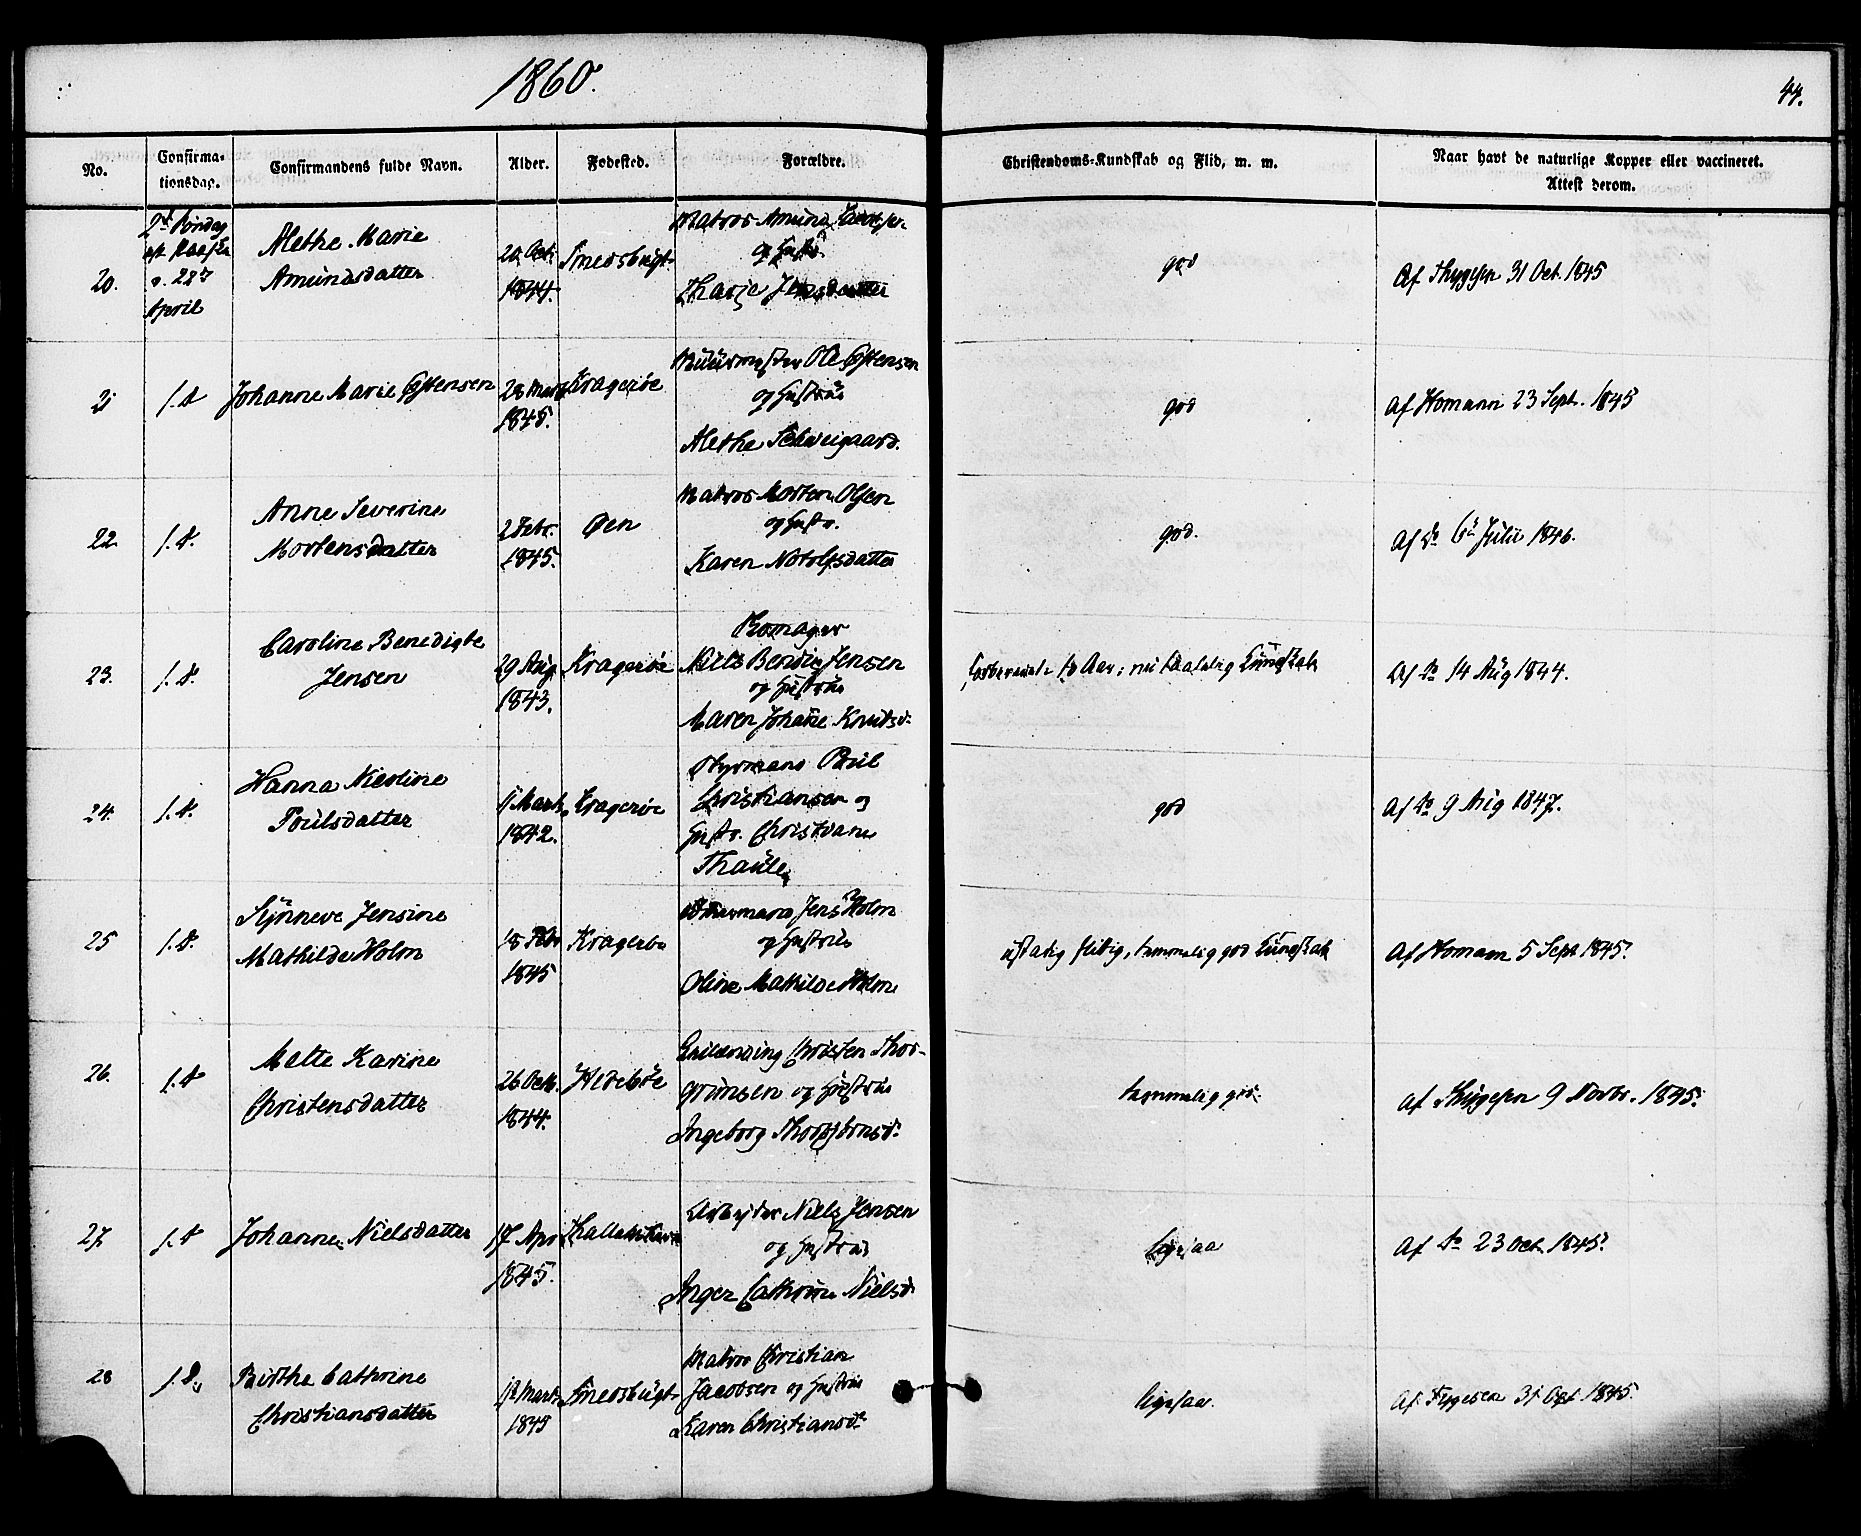 1860.
44.
No.
Confirma-
tionsdag.
Confirmandens fulde Navn.
Alder.
Fødested.
Forældre.
Christendoms-Kundskab og Flid, m. m.
Naar havt de naturlige Kopper eller vaccineret.
Attest derom.
20.
2d Søndag
April
Alethe Marie
Amundsdatter
20 Oct.
1844.
Smedsbugt
Matros Amund
og Hustr.
Tharje Jensdatter
god
Af Thygesen 31 Oct. 1845
21
s. D
Johanne Marie Estensen
28 Marts
1845.
Kragerøe
Muurmester Ole Estensen
og Hustrue
Alethe Schweigaard.
god
Af Homann 23 Sept. 1845
22
s. D.
Anne Severine
Mortensdatter
2 Febr.
1845.
Øen
Matros Morten Olsen
og Hustr.
Karen Notolfsdatter
god.
Af Do 6te Julii 1846.
23.
s. D.
Caroline Benedigte
Jensen
29 Aug.
1843.
Kragerøe
Niels Bendix Jensen
og Hustrue
Maren Johanne Knudsd.
Aar; nu taalelig Kundskab
Af Do 14 Aug 1844.
24.
s. D.
Hanna Nicoline
Poulsdatter
Marts
1842.
Kragerøe
Styrmand Poul
Christiansen og
Hustr. Christiane
Thaule
god
Af Do 9 Aug 1847.
25
s. D.
Synneve Jensine
Mathilde Holm
18 Febr
1845
Kragerøe
Styrmand Jens Holm
og Hustrue
Oline Mathilde Holm
ustadig flittig, temmelig god Kundskab
Af Homann 5 Sept 1845.
26.
s. D
Mette Karine
Christensdatter
26 Octb.
1844.
Christen Thor-
grimsen og Hustrue
Ingeborg Thorsbornsd.
temmelig god.
Af Thygesen 9 Novbr. 1845.
27.
s. D
Johanne Nielsdatter
17 Apr
1845.
Arbejder Niels Jensen
og Hustrue
Inger Cathrine Nielsd
ligesaa
Af Do 23 Oct. 1845.
28
s. D.
Birthe Cathrine
Christiansdatter
Marts
1845
Smedsbugt
Matros Christian
Jacobsen og Hustrue
Karen Christiansd.
ligesaa.
Af Tygesen 31 Oct 1845.